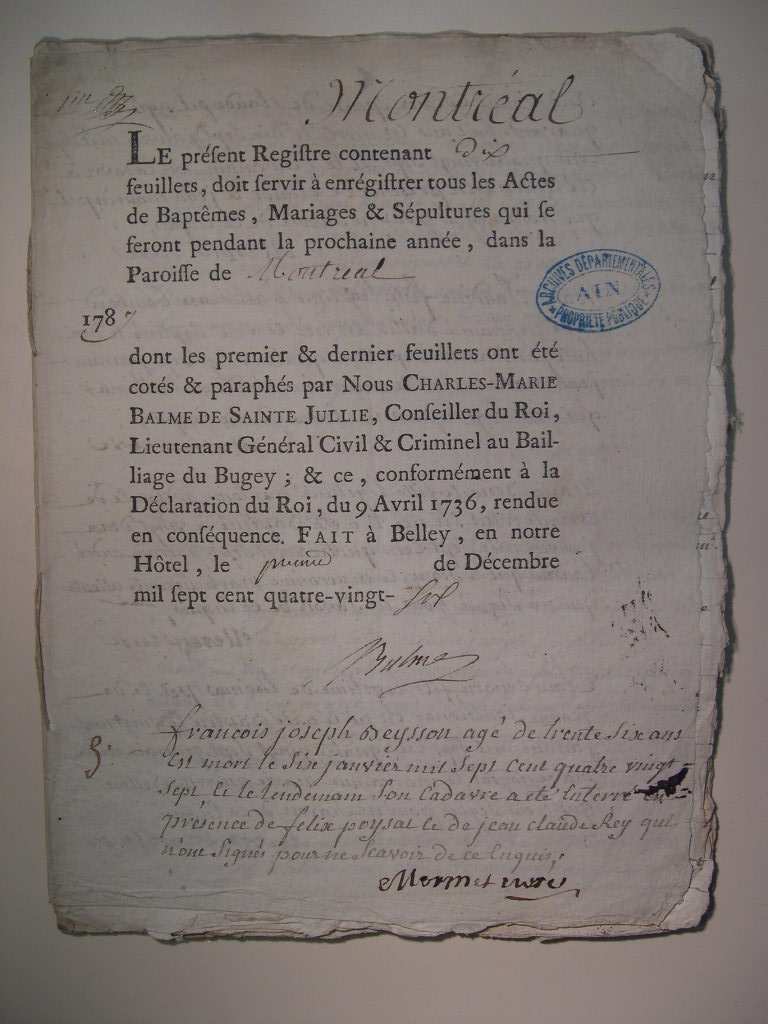 Montréal
LE préſent Regiſtre contenant dix
feuillets, doit ſervir à enrégiſtrer tous les Actes
de Baptêmes, Mariages & Sépultures qui ſe
feront pendant la prochaine année, dans la
Paroiſſe de Montréal
ARCHIVES DÉPARTEMENTALES
AIN
PROPRIÉTÉ PUBLIQUE
1787
dont les premier & dernier feuillets ont été
cotés & paraphés par Nous CHARLES-MARIE
BALME DE SAINTE JULLIE, Conſeiller du Roi,
Lieutenant Général Civil & Criminel au Bail-
liage du Bugey ; & ce, conformément à la
Déclaration du Roi, du 9 Avril 1736, rendue
en conſéquence. FAIT à Belley, en notre
Hôtel, le premier de Décembre
mil ſept cent quatre-vingt-six
Balme
S. françois joseph Beysson agé de trente six ans
est mort le six janvier mil sept cent quatre vingt
sept et le lendemain son cadavre a eté enterré en
présence de felix poysat et de jean claude Rey qui
n'ont signés pour ne scavoir de ce enquis.
Mermet curé